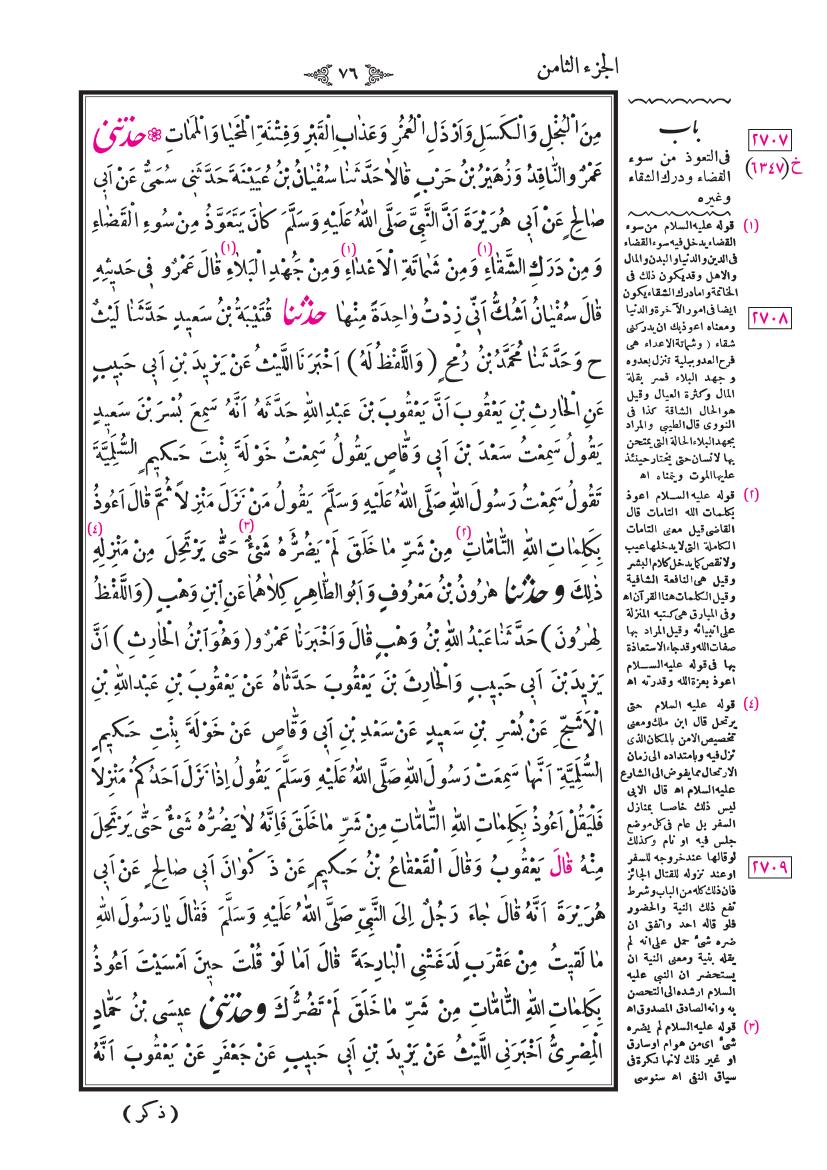 الجزء الثامن
٧٦
مِنَ الْبُخْلِ وَالْكَسَلِ وَاَرْذَلِ الْعُمُرِ وَعَذَابِ الْقَبْرِ وَفِتْنَةِ الْمَحْيَا وَالْمَمَاتِ حَدَّثَنِي
عَمْرٌو النَّاقِدُ وَزُهَيْرُ بْنُ حَرْبٍ قَالَا حَدَّثَنَا سُفْيَانُ بْنُ عُيَيْنَةَ حَدَّثَنِي سُمَيٌّ عَنْ اَبِي
صَالِحٍ عَنْ اَبِي هُرَيْرَةَ اَنَّ النَّبِيَّ صَلَّى اللهُ عَلَيْهِ وَسَلَّمَ كَانَ يَتَعَوَّذُ مِنْ سُوءِ الْقَضَاءِ
وَمِنْ دَرَكِ الشَّقَاءِ (١) وَمِنْ شَمَاتَةِ الْاَعْدَاءِ (١) وَمِنْ جُهْدِ الْبَلَاءِ (١) قَالَ عَمْرٌو فِي حَدِيثِهِ
قَالَ سُفْيَانُ اَشُكُّ اَنِّي زِدْتُ وَاحِدَةً مِنْهَا حَدَّثَنَا قُتَيْبَةُ بْنُ سَعِيدٍ حَدَّثَنَا لَيْثٌ
ح وَحَدَّثَنَا مُحَمَّدُ بْنُ رُمْحٍ (وَاللَّفْظُ لَهُ) اَخْبَرَنَا اللَّيْثُ عَنْ يَزِيدَ بْنِ اَبِي حَبِيبٍ
عَنِ الْحَارِثِ بْنِ يَعْقُوبَ اَنَّ يَعْقُوبَ بْنَ عَبْدِ اللهِ حَدَّثَهُ اَنَّهُ سَمِعَ بُسْرَ بْنَ سَعِيدٍ
يَقُولُ سَمِعْتُ سَعْدَ بْنَ اَبِي وَقَّاصٍ يَقُولُ سَمِعْتُ خَوْلَةَ بِنْتَ حَكِيمٍ السُّلَمِيَّةَ
تَقُولُ سَمِعْتُ رَسُولَ اللهِ صَلَّى اللهُ عَلَيْهِ وَسَلَّمَ يَقُولُ مَنْ نَزَلَ مَنْزِلًا ثُمَّ قَالَ اَعُوذُ
بِكَلِمَاتِ اللهِ التَّامَّاتِ (٢) مِنْ شَرِّ مَا خَلَقَ لَمْ يَضُرُّهُ شَىْءٌ (٣) حَتَّى يَرْتَحِلَ مِنْ مَنْزِلِهِ (٤)
ذٰلِكَ وَحَدَّثَنَا هٰرُونُ بْنُ مَعْرُوفٍ وَاَبُو الطَّاهِرِ كِلَاهُمَا عَنِ ابْنِ وَهْبٍ (وَاللَّفْظُ
لِهٰرُونَ) حَدَّثَنَا عَبْدُ اللهِ بْنُ وَهْبٍ قَالَ وَاَخْبَرَنَا عَمْرٌو (وَهُوَ ابْنُ الْحَارِثِ) اَنَّ
يَزِيدَ بْنَ اَبِي حَبِيبٍ وَالْحَارِثَ بْنَ يَعْقُوبَ حَدَّثَاهُ عَنْ يَعْقُوبَ بْنِ عَبْدِ اللهِ بْنِ
الْاَشَجِّ عَنْ بُسْرِ بْنِ سَعِيدٍ عَنْ سَعْدِ بْنِ اَبِي وَقَّاصٍ عَنْ خَوْلَةَ بِنْتِ حَكِيمٍ
السُّلَمِيَّةِ اَنَّهَا سَمِعَتْ رَسُولَ اللهِ صَلَّى اللهُ عَلَيْهِ وَسَلَّمَ يَقُولُ اِذَا نَزَلَ اَحَدُكُمْ مَنْزِلًا
فَلْيَقُلْ اَعُوذُ بِكَلِمَاتِ اللهِ التَّامَّاتِ مِنْ شَرِّ مَا خَلَقَ فَاِنَّهُ لَا يَضُرُّهُ شَىْءٌ حَتَّى يَرْتَحِلَ
مِنْهُ قَالَ يَعْقُوبُ وَقَالَ الْقَعْقَاعُ بْنُ حَكِيمٍ عَنْ ذَكْوَانَ اَبِي صَالِحٍ عَنْ اَبِي
هُرَيْرَةَ اَنَّهُ قَالَ جَاءَ رَجُلٌ اِلَى النَّبِيِّ صَلَّى اللهُ عَلَيْهِ وَسَلَّمَ فَقَالَ يَا رَسُولَ اللهِ
مَا لَقِيتُ مِنْ عَقْرَبٍ لَدَغَتْنِي الْبَارِحَةَ قَالَ اَمَا لَوْ قُلْتَ حِينَ اَمْسَيْتَ اَعُوذُ
بِكَلِمَاتِ اللهِ التَّامَّاتِ مِنْ شَرِّ مَا خَلَقَ لَمْ تَضُرَّكَ وَحَدَّثَنِي عِيسَى بْنُ حَمَّادٍ
الْمِصْرِيُّ اَخْبَرَنِي اللَّيْثُ عَنْ يَزِيدَ بْنِ اَبِي حَبِيبٍ عَنْ جَعْفَرٍ عَنْ يَعْقُوبَ اَنَّهُ
(ذكر)
٢٧٠٧
خ (٦٣٤٧)
٢٧٠٨
٢٧٠٩
باب
فى التعوذ من سوء
القضاء ودرك الشقاء
وغيره
(١) قوله عليه السلام من سوء
القضاء يدخل فيه سوء القضاء
فى الدين والدنيا والبدن والمال
والاهل وقد يكون ذلك فى
الخاتمة واما درك الشقاء يكون
ايضا فى امور الآخرة والدنيا
ومعناه اعوذ بك ان يدركنى
شقاء (وشماتة الاعداء هى
فرح العدو ببلية تنزل بعدوه
وجهد البلاء فسر بقلة
المال وكثرة العيال وقيل
هو الحال الشاقة كذا فى
النووى قال الطيبى والمراد
بجهد البلاء الحالة التى يمتحن
بها الانسان حتى يختار حينئذ
عليها الموت ويتمناه اه
(٢) قوله عليه السلام اعوذ
بكلمات الله التامات قال
القاضى قيل معنى التامات
الكاملة التى لا يدخلها عيب
ولا نقص كما يدخل كلام البشر
وقيل هى النافعة الشافية
وقيل الكلمات هنا القرآن اه
وفى المبارق هى كتبه المنزلة
على انبيائه وقيل المراد بها
صفات الله وقد جاء الاستعاذة
بها فى قوله عليه السلام
اعوذ بعزة الله وقدرته اه
(٤) قوله عليه السلام حتى
يرتحل قال ابن ملك ومعنى
تخصيص الامن بالمكان الذى
نزل فيه وبامتداده الى زمان
الارتحال مما يفوض الى الشارع
عليه السلام اه قال الابى
ليس ذلك خاصا بمنازل
السفر بل عام فى كل موضع
جلس فيه او نام وكذلك
لو قالها عند خروجه للسفر
او عند نزوله للقتال الجائز
فان ذلك كله من الباب وشرط
نفع ذلك النية والحضور
فلو قاله احد واتفق ان
ضره شىء حمل على انه لم
يقله بنية ومعنى النية ان
يستحضر ان النبى عليه
السلام ارشده الى التحصن
به وانه الصادق المصدوق اه
(٣) قوله عليه السلام لم يضره
شىء اى من هوام او سارق
او غير ذلك لانها نكرة فى
سياق النفى اه سنوسى